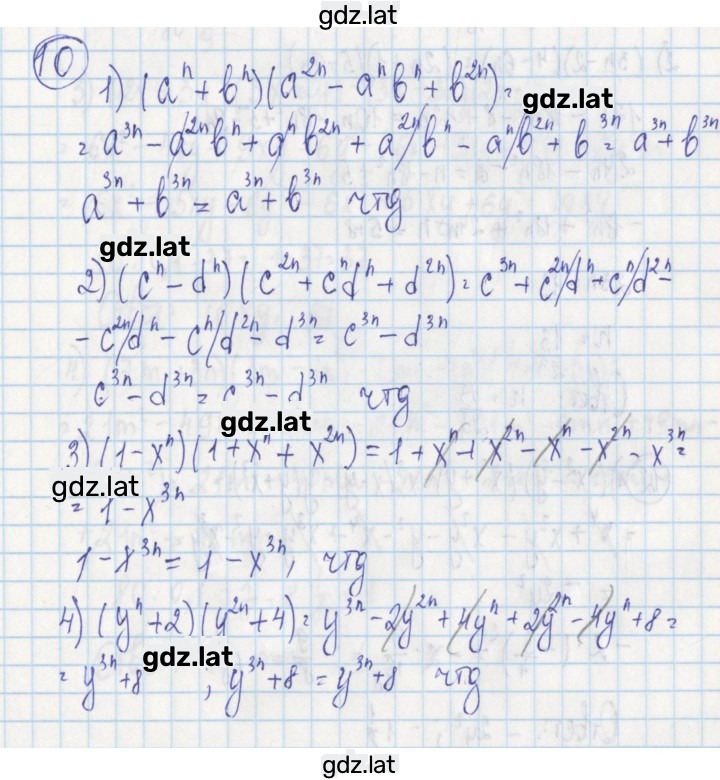 gdz.lat
10
1) (aⁿ + bⁿ)(a²ⁿ - aⁿbⁿ + b²ⁿ) =
gdz.lat
= a³ⁿ - a²ⁿbⁿ + aⁿb²ⁿ + a²ⁿbⁿ - aⁿb²ⁿ + b³ⁿ = a³ⁿ + b³ⁿ
a³ⁿ + b³ⁿ = a³ⁿ + b³ⁿ чтд
gdz.lat
2) (cⁿ - dⁿ)(c²ⁿ + cⁿdⁿ + d²ⁿ) = c³ⁿ + c²ⁿdⁿ + cⁿd²ⁿ -
- c²ⁿdⁿ - cⁿd²ⁿ - d³ⁿ = c³ⁿ - d³ⁿ
c³ⁿ - d³ⁿ = c³ⁿ - d³ⁿ чтд
gdz.lat
3) (1 - xⁿ)(1 + xⁿ + x²ⁿ) = 1 + xⁿ + x²ⁿ - xⁿ - x²ⁿ - x³ⁿ =
gdz.lat
= 1 - x³ⁿ
1 - x³ⁿ = 1 - x³ⁿ, чтд
4) (yⁿ + 2)(y²ⁿ + 4) = y³ⁿ - 2y²ⁿ + 4yⁿ + 2y²ⁿ - 4yⁿ + 8 =
gdz.lat
= y³ⁿ + 8 , y³ⁿ + 8 = y³ⁿ + 8 чтд
gdz.lat